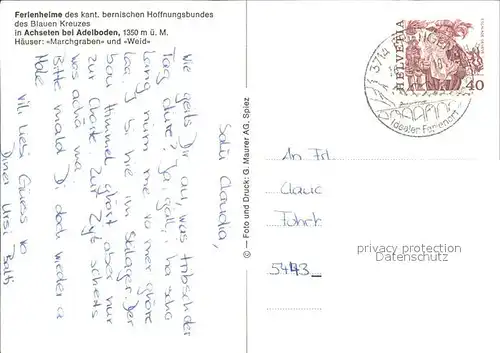 Ferienheime des kant. bernischen Hoffnungsbundes
des Blauen Kreuzes
in Achseten bei Adelboden, 1350 m ü. M.
Häuser: «Marchgraben» und «Weid»
Salü Claudia,
Wie geits Dir au, was tribsch der
Tag düre? Ja, gäll, i ha scho
lang nüm me vo mer ghöre
laa. I bi hie im Skilager. Der
blau Himmel ghört aber nur
zur Charte. Zur Zyt schneits
was acha ma.
Bitte mäld Di doch wieder a
mal.
Vili liebi Grüess vo
Dinei Ursi
© – Foto und Druck: G. Maurer AG, Spiez
3714
HELVETIA
40
Idealer Ferienort
An Frl.
5443
privacy protection
Datenschutz